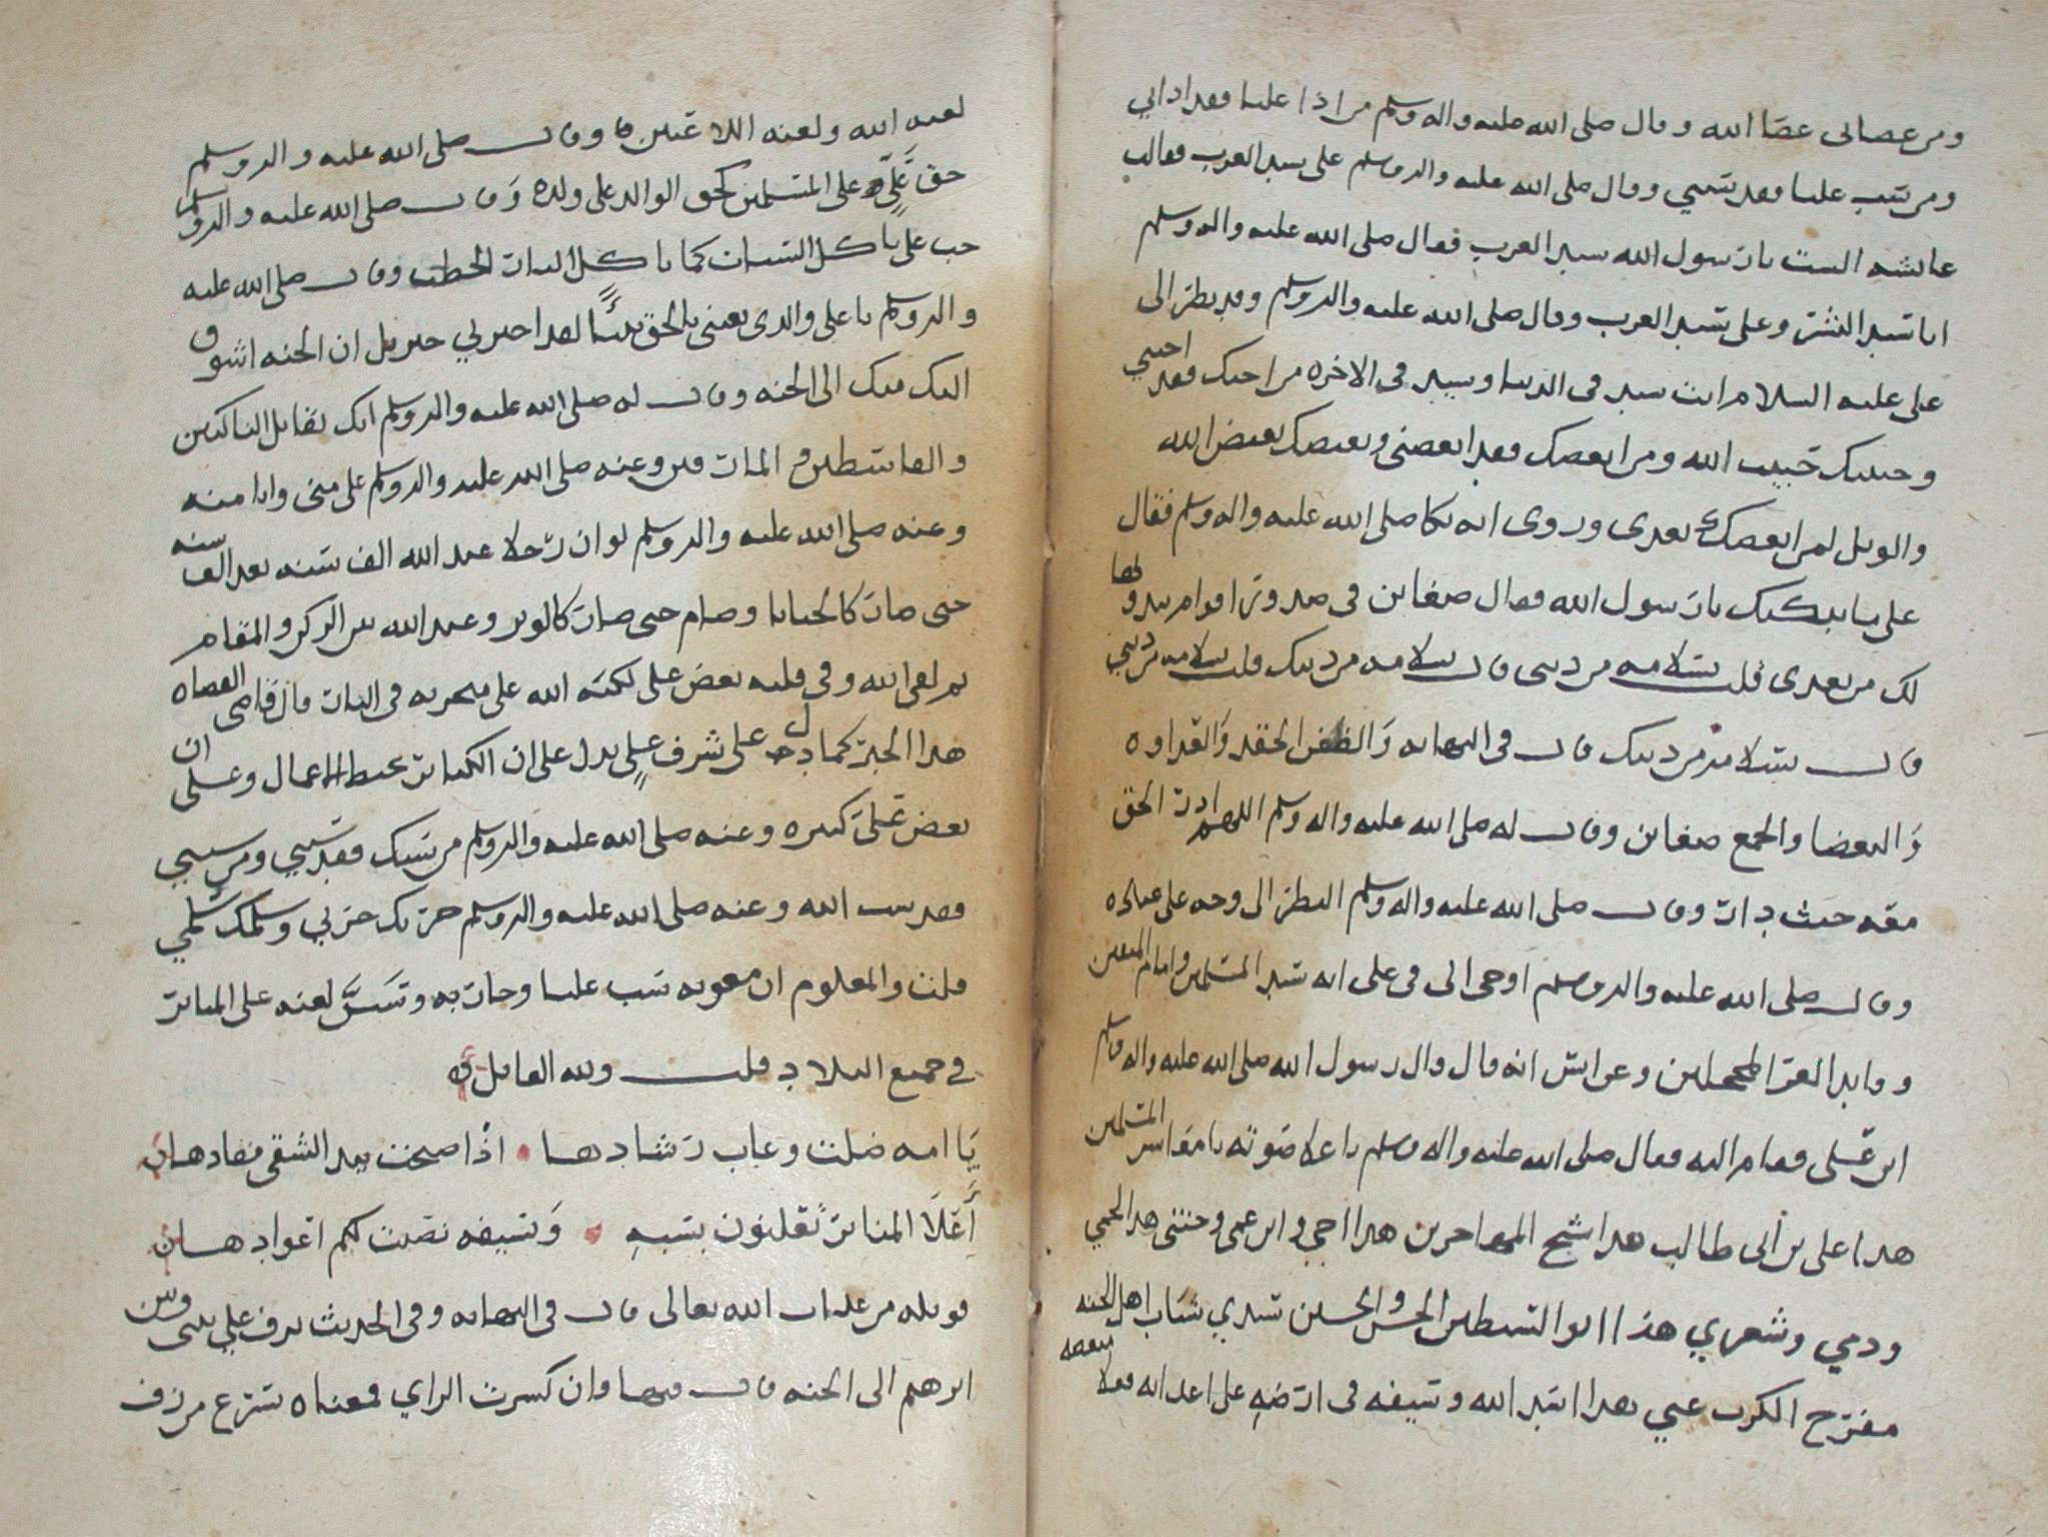 ومن عصاني عصا الله وقال صلى الله عليه واله وسلم من اذا عليا فقد اذاني
ومن سب عليا فقد سبني وقال صلى الله عليه واله وسلم علي سيد العرب فقالت
عايشه الست يا رسول الله سيد العرب فقال صلى الله عليه واله وسلم
انا سيد البشر وعلي سيد العرب وقال صلى الله عليه واله وسلم وقد نظر الى
علي عليه السلام انت سيد في الدنيا وسيد في الاخره من احبك فقد احبني
وحبيبك حبيب الله ومن ابغضك فقد ابغضني وبغيضك بغيض الله
والويل لمن ابغضك بعدي وروى انه بكا صلى الله عليه واله وسلم فقال
علي ما يبكيك يا رسول الله فقال ضغاين في صدور اقوام يبدونها
لك من بعدي قلت بسلامه من ديني قال بسلامه من دينك قلت بسلامه من ديني
قال بسلامه من دينك قال في النهايه والضغن الحقد والعداوه
والبغضا والجمع ضغاين وقال له صلى الله عليه واله وسلم اللهم ادر الحق
معه حيث دار وقال صلى الله عليه واله وسلم النظر الى وجه علي عباده
وقال صلى الله عليه واله وسلم اوحي الي في علي انه سيد المسلمين وامام المتقين
وقايد الغر المحجلين وعن انس انه قال قال رسول الله صلى الله عليه واله وسلم
اين علي فقام اليه فقال صلى الله عليه واله وسلم باعلا صوته يا معاشر المسلمين
هذا علي بن ابي طالب هذا شيخ المهاجرين هذا اخي وابن عمي وختني هذا لحمي
ودمي وشعري هذا ابو السبطين الحسن والحسين سيدي شباب اهل الجنه
مفرج الكرب عني هذا اسد الله وسيفه في ارضه على اعدائه فعلا مبغضه
لعنه الله ولعنه اللاعنين وقال صلى الله عليه واله وسلم
حق علي على المسلمين كحق الوالد على ولده وقال صلى الله عليه واله وسلم
حب علي ياكل السيات كما ياكل النار الحطب وقال صلى الله عليه
واله وسلم يا علي والذي بعثني بالحق نبيا لقد اخبرني جبريل ان الجنه اشوق
اليك منك الى الجنه وقال له صلى الله عليه واله وسلم انك تقاتل الناكثين
والقاسطين والمارقين وعنه صلى الله عليه واله وسلم علي مني وانا منه
وعنه صلى الله عليه واله وسلم لو ان رجلا عبد الله الف سنه بعد الف سنه
حتى صار كالحنايا وصام حتى صار كالوتر وعبد الله بين الركن والمقام
ثم لقي الله وفي قلبه بغض علي لكبه الله على منخريه في النار قال قاضي القضاه
هذا الخبر كما دل على شرف علي يدل على ان الكباير تحبط الاعمال وعلى ان
بغض علي كبيره وعنه صلى الله عليه واله وسلم من سبك فقد سبني ومن سبني
فقد سب الله وعنه صلى الله عليه واله وسلم حربك حربي وسلمك سلمي
قلت والمعلوم ان معويه سب عليا وحاربه وسن لعنه على المنابر
في جميع البلاد قلت ولله القائل
يا امه ضلت وغاب رشادها اذا صحت بيد الشقي قيادها
أعلا المنابر تعلنون بسبه وبسيفه نصبت لكم اعوادها
فويله من عذاب الله تعالى قال في النهايه وفي الحديث يزف علي بيني وبين
ابرهيم الى الجنه قال فيها وان كسرت الزاي فمعناه يسرع من زف